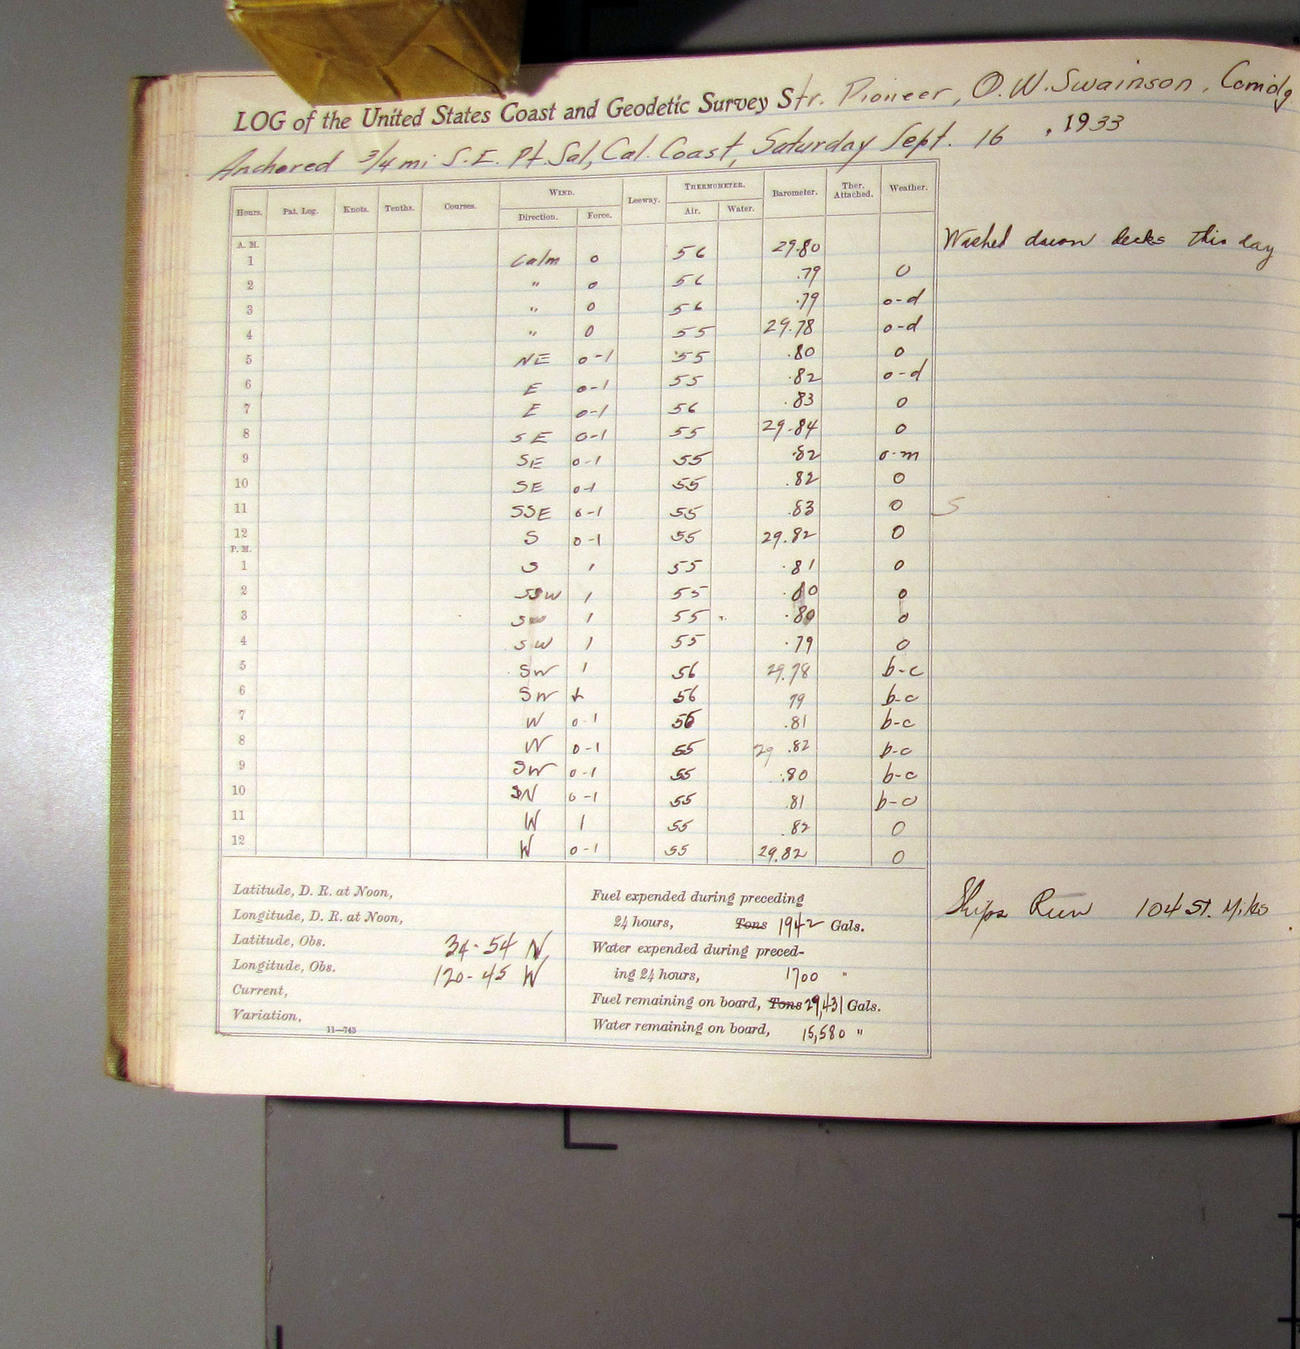 LOG of the United States Coast and Geodetic Survey Str. Pioneer, O.W. Swainson, Comdg
Anchored 3/4 mi S.E. Pt. Sal, Cal. Coast, Saturday Sept. 16, 1933
Hours. Pat. Log. Knots. Tenths. Courses. WIND. Leeway. THERMOMETER. Barometer. Ther. Attached. Weather.
Direction. Force. Air. Water.
A. M.
1 Calm 0 56 29.80
Washed down decks this day
2 " 0 56 .79 o
3 " 0 56 .79 o-d
4 " 0 55 29.78 o-d
5 NE 0-1 55 .80 o
6 E 0-1 55 .82 o-d
7 E 0-1 56 .83 o
8 SE 0-1 55 29.84 o
9 SE 0-1 55 .82 o-m
10 SE 0-1 55 .82 o
11 SSE 0-1 55 .83 o S
12 S 0-1 55 29.82 o
P. M.
1 S 1 55 .81 o
2 SSW 1 55 .80 o
3 SW 1 55 .80 o
4 SW 1 55 .79 o
5 SW 1 56 29.78 b-c
6 SW 1 56 79 b-c
7 W 0-1 56 .81 b-c
8 W 0-1 55 29 .82 b-c
9 SW 0-1 55 .80 b-c
10 SW 0-1 55 .81 b-c
11 W 1 55 .82 o
12 W 0-1 55 29.82 o
Latitude, D. R. at Noon,
Longitude, D. R. at Noon,
Latitude, Obs. 34-54 N
Longitude, Obs. 120-45 W
Current,
Variation,
11—745
Fuel expended during preceding
24 hours, Tons 1942 Gals.
Water expended during preced-
ing 24 hours, 1700 "
Fuel remaining on board, Tons 29,431 Gals.
Water remaining on board, 15,580 "
Ships Run 104 St. Miles